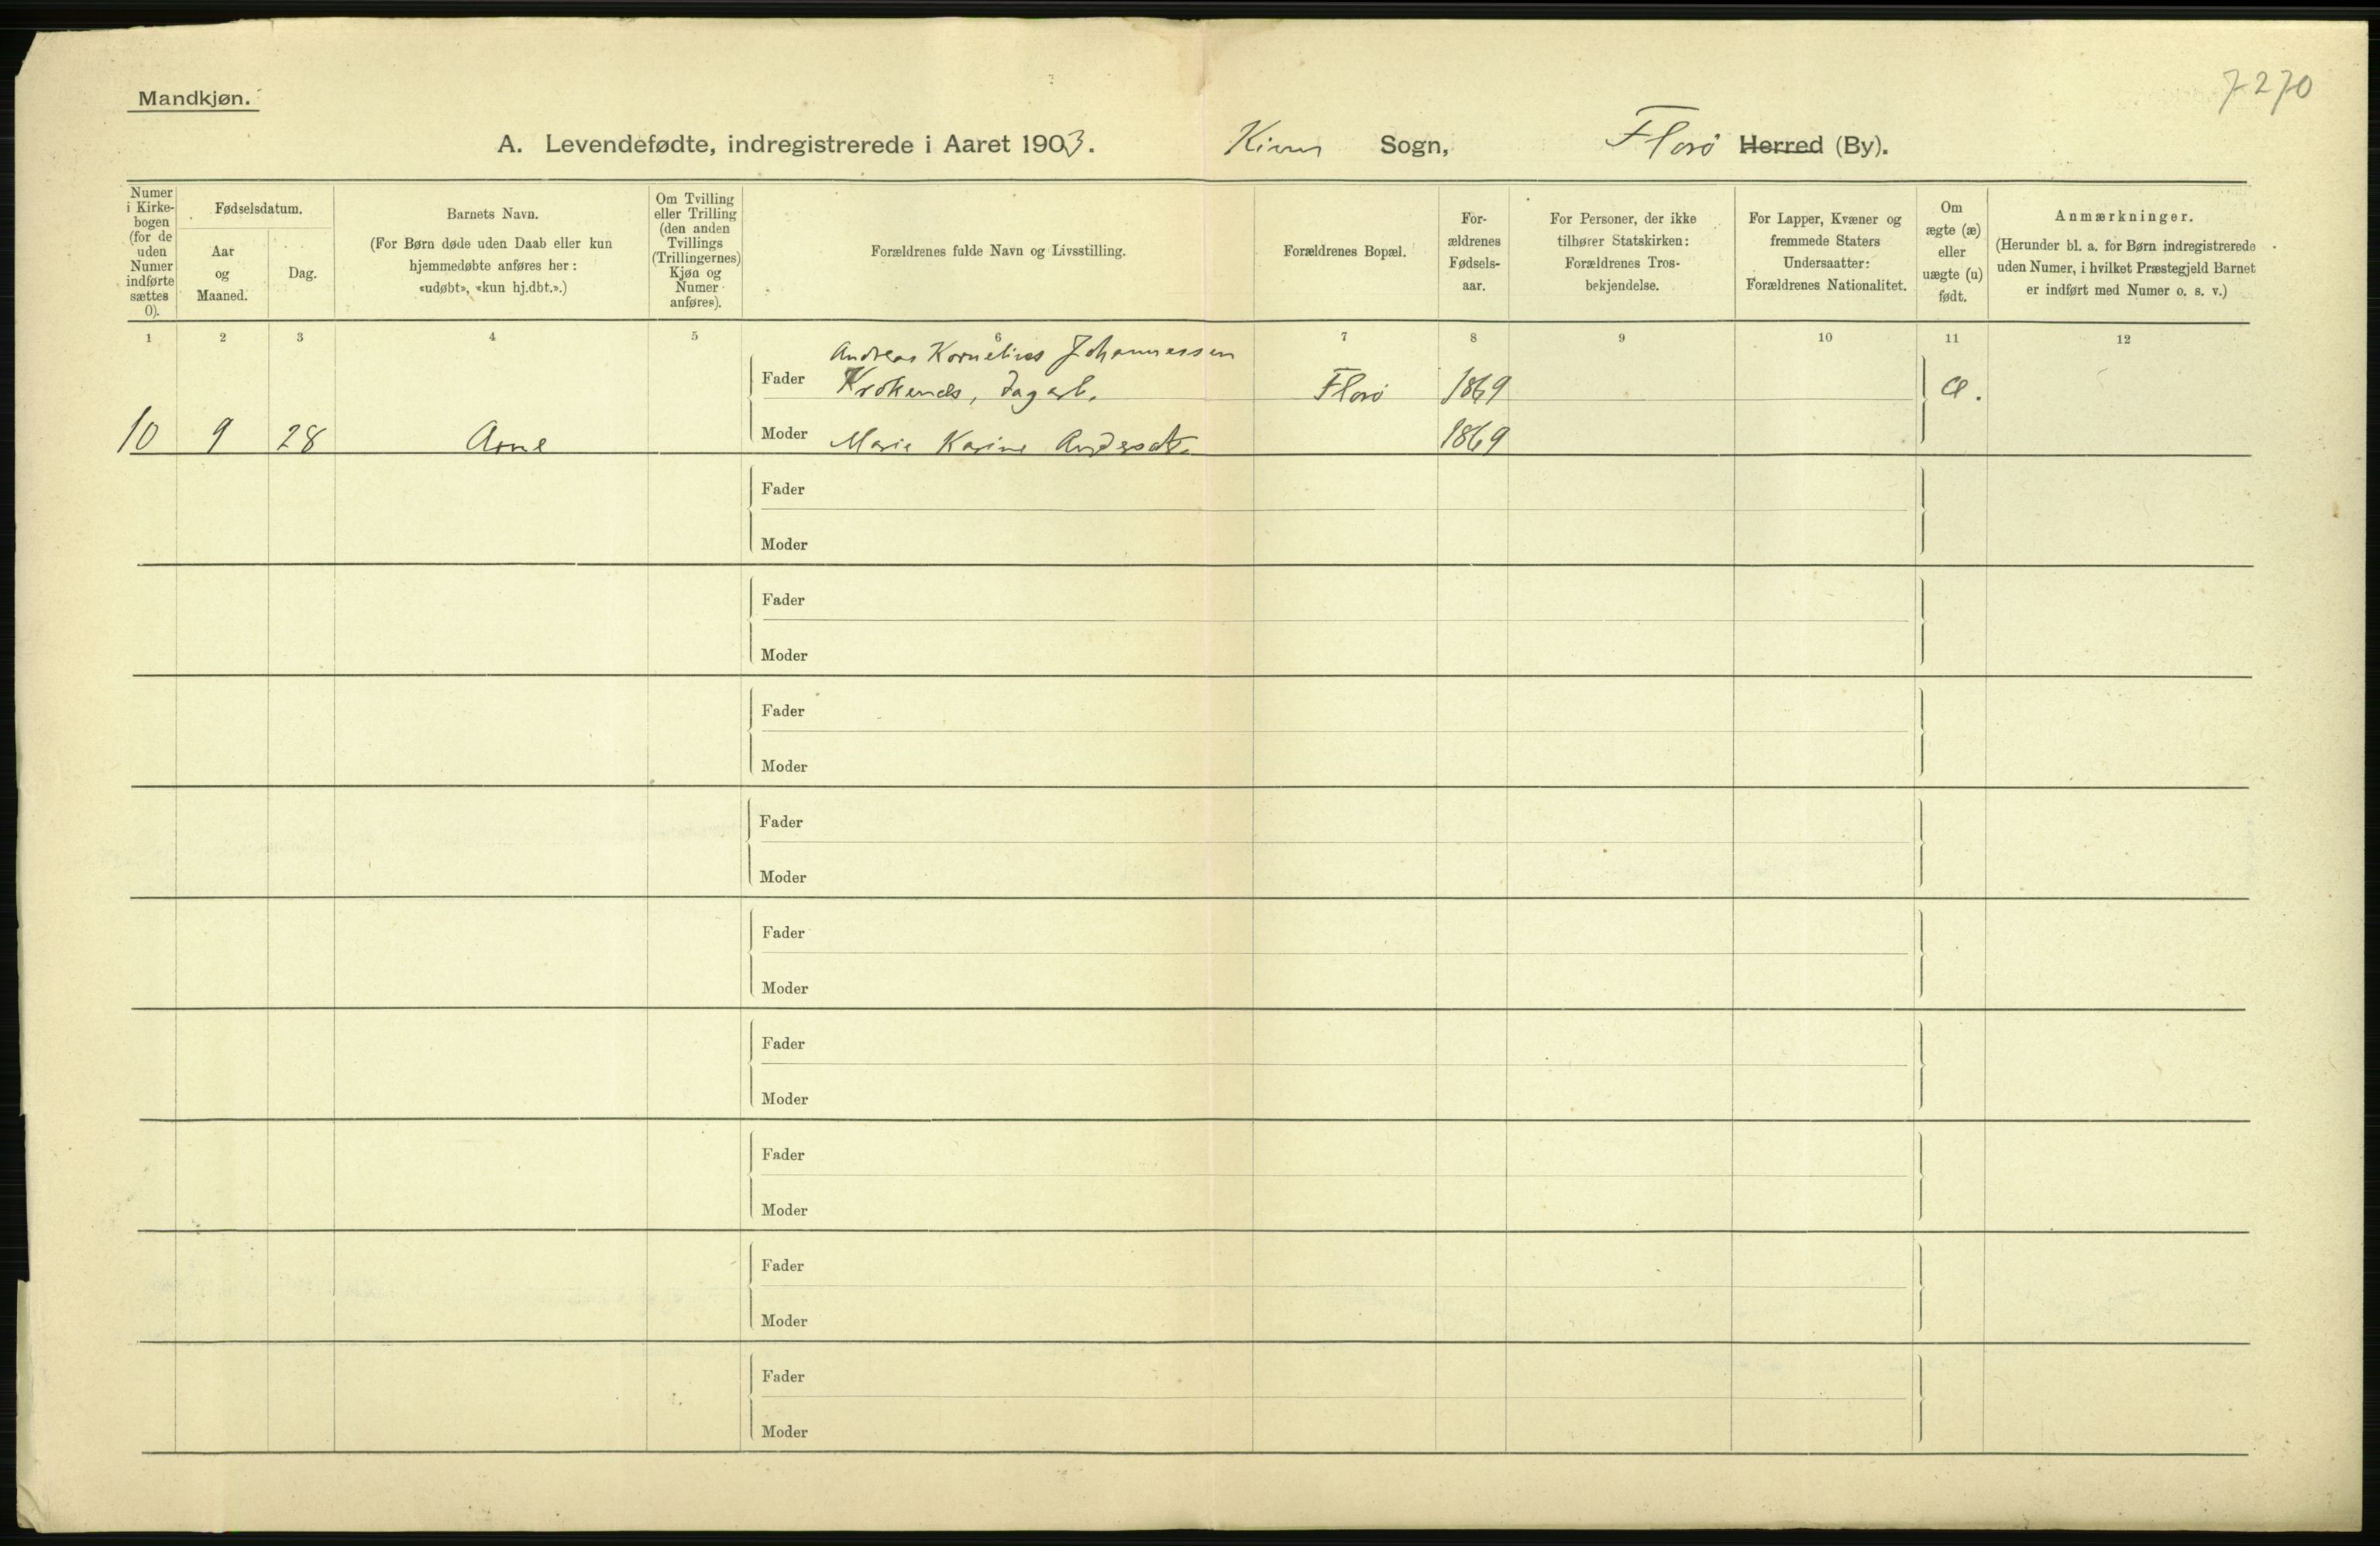 7270
Mandkjøn.
A. Levendefødte, indregistrerede i Aaret 1903. Kinn Sogn, Florø Herred (By).
Numer i Kirke- bogen (for de uden Numer indførte sættes 0).
Fødselsdatum.
Aar og Maaned.
Dag.
Barnets Navn.
(For Børn døde uden Daab eller kun
hjemmedøbte anføres her:
«udøbt», «kun hj.dbt.».)
Om Tvilling
eller Trilling
(den anden
Tvillings
(Trillingernes)
Kjøn og
Numer
anføres).
Forældrenes fulde Navn og Livsstilling.
Forældrenes Bopæl.
For-
ældrenes
Fødsels-
aar.
For Personer, der ikke
tilhører Statskirken:
Forældrenes Tros-
bekjendelse.
For Lapper, Kvæner og
fremmede Staters
Undersaatter:
Forældrenes Nationalitet.
Om
ægte (æ)
eller
uægte (u)
født.
Anmærkninger.
(Herunder bl. a. for Børn indregistrerede
uden Numer, i hvilket Præstegjeld Barnet
er indført med Numer o. s. v.)
1 2 3 4 5 6 7 8 9 10 11 12
Andreas Kornelius Johannessen
Fader Krokenes, dagarb. Florø 1869 æ.
10 9 28 Arne Moder Marie Karine Andersdtr. 1869
Fader
Moder
Fader
Moder
Fader
Moder
Fader
Moder
Fader
Moder
Fader
Moder
Fader
Moder
Fader
Moder
Fader
Moder